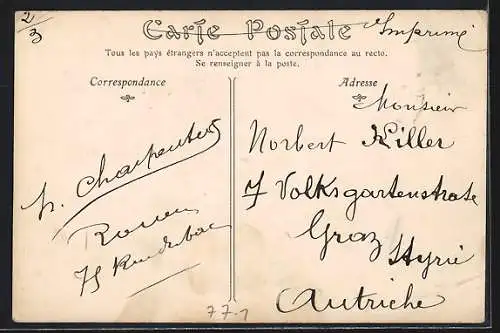 2/3
Carte Postale
Imprimé
Tous les pays étrangers n'acceptent pas la correspondance au recto.
Se renseigner à la poste.
Correspondance
Adresse
Monsieur
Norbert Killer
7 Volksgartenstrate
Graz Styrie
Autriche
h. Charpentier
Rouen
75
77-1